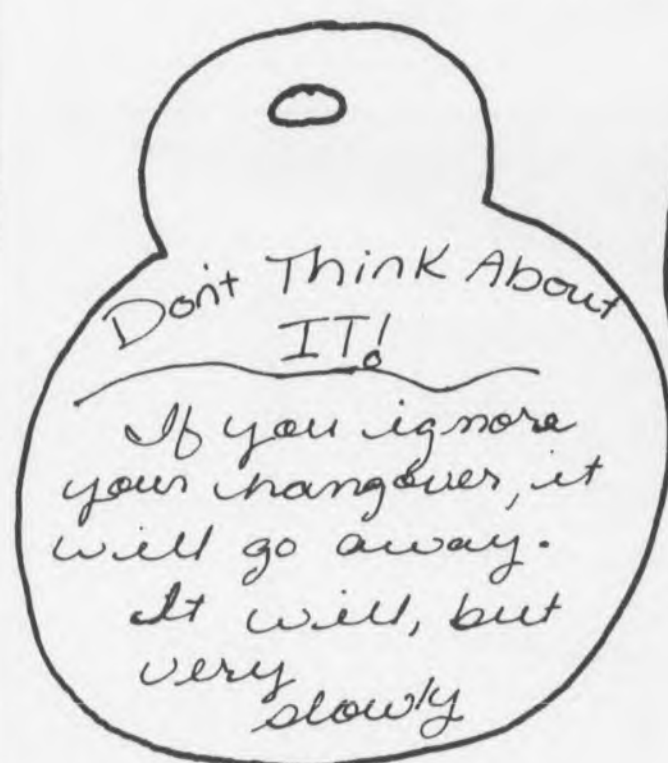 Don't Think About
IT!
If you ignore
your hangover, it
will go away.
It will, but
very
slowly